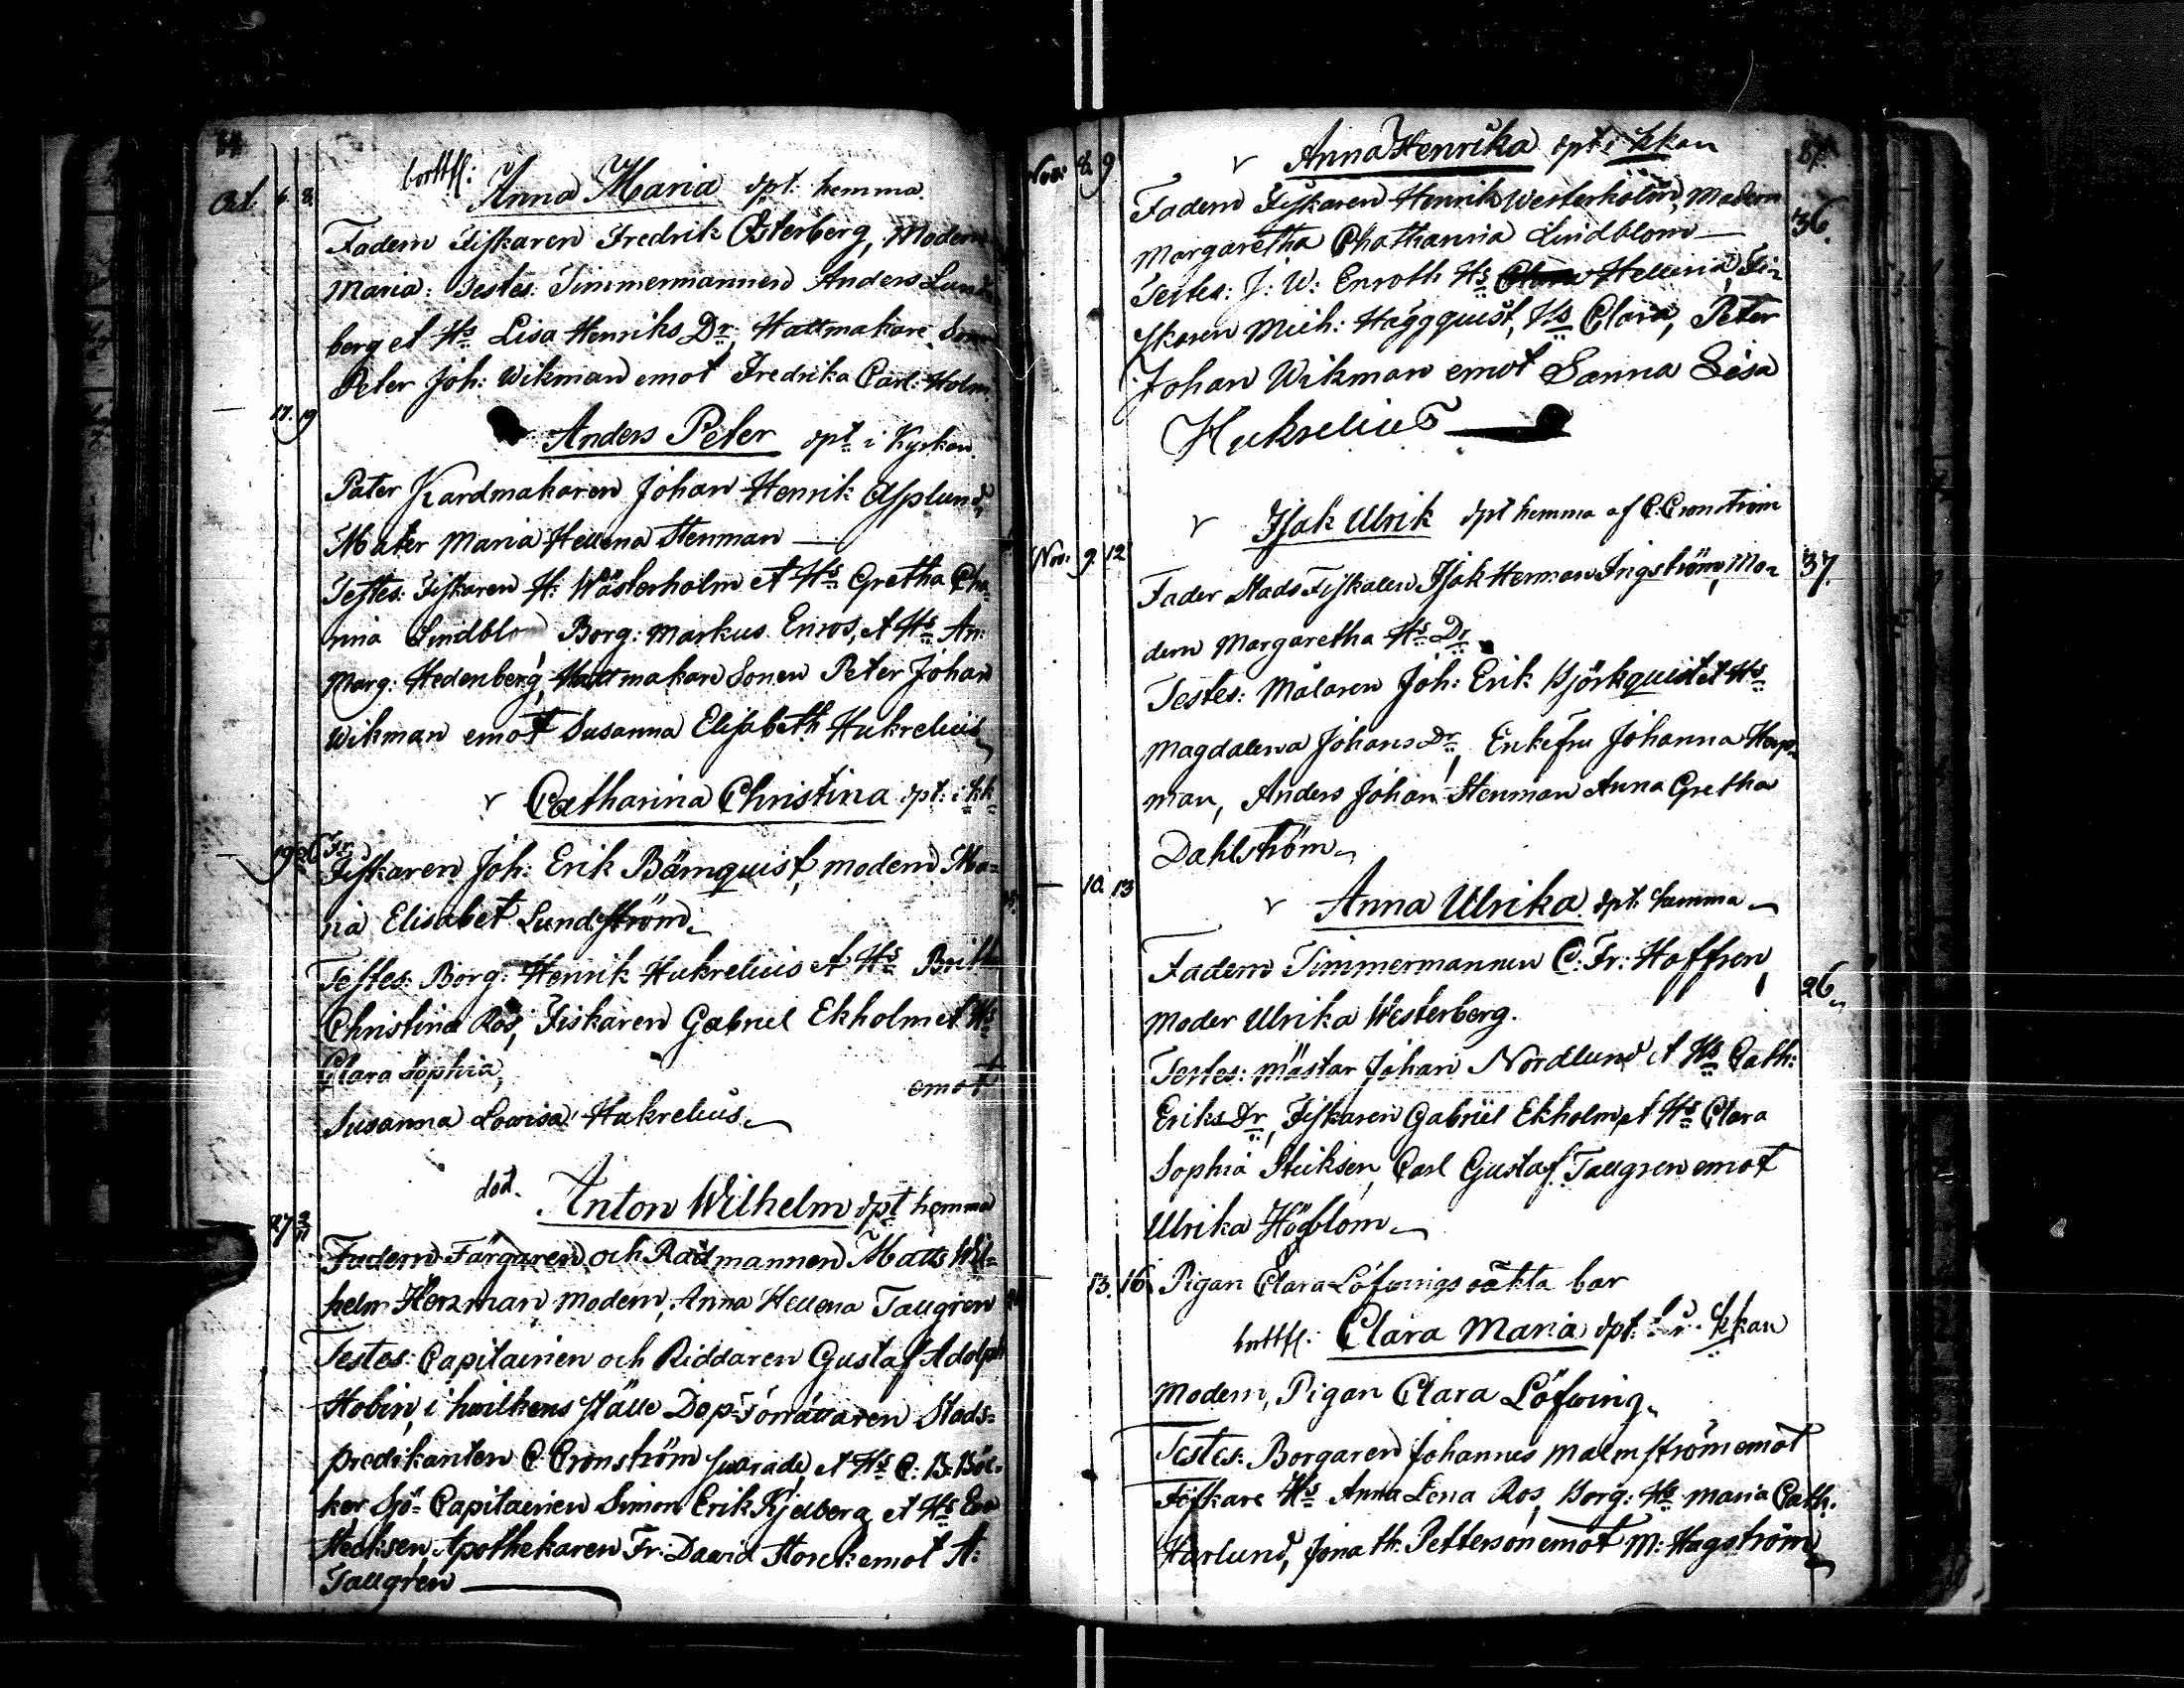 bortfl:
Oct. 6. 8. Anna Maria dpt: hemma.
Fadern Fiskaren Fredrik Österberg, Modern
Maria: Testes: Timmermannen Anders Lund
berg et Hs Lisa Henriks Dr, Hattmakare Son
Peter Joh: Wikman emot Fredrika Carl: Holm.
17. 19 Anders Peter dpt i Kyrkan
Pater Kardmakaren Johan Henrik Asplund,
Mater Maria Hellena Stenman —
Testes: Fiskaren H: Wästerholm et Hs Gretha Cha
nina Lindblo Borg: Markus Enros, et Hs An:
Marg: Hedenberg, Hattmakare Sonen Peter Johan
Wikman emot Susanna Elisabeth Hukrelius
Catharina Christina dpt: i kk
19 Fr
Fiskaren Joh: Erik Bärnquist, modern Ma=
ria Elisabet Lundström
Testes: Borg: Henrik Hukrelius et Hs Britta
Christina Ros, Fiskaren Gabriel Ekholm et Hs
Clara Sophia,
emot
Susanna Lovisa Hukrelius
död.
27 Anton Wilhelm dpt hemma
Fadern Färgaren och Rådmannen Matts Wil=
helm Herzman, modern, Anna Hellena Tallgren
Testes: Capitainen och Riddaren Gustaf Adolph
Hobin, i hvilkens ställe Dop-Förrättaren Stads=
predikanten C. Cronström swarade, et Hs C: B: Böc=
ker Sjö-Capitainen Simon Erik Kjelberg et Hs Eva
Stecksen, Apothekaren Fr: David Storck emot A:
Tallgren
Nov: 8. 9 Anna Henrika dpt i kkan
Fadern Fiskaren Henrik Westerholm, Modern
36.
Margaretha Chatharina Lindblom —
Testes: J: W: Enroth Hs Clara Hellena, Fi=
skaren Mich: Häggquist, Hs Clara, Peter
Johan Wikman emot Sanna Lisa
Hukrelius
Isak Ulrik dpt hemma af C. Cronström
Nov. 9. 12
Fader Stads Fiskalen Isak Herman Ingström, Mo= 37.
dern Margaretha Hs Dr
Testes: Målaren Joh: Erik Björkquist et Hs
Magdalena Johans Dr, Enkefru Johanna Hap=
man, Anders Johan Stenman Anna Gretha
Dahlström
10. 13
Anna Ulrika dpt. hemma
Fadern Timmermannen C: Fr: Hoffren,
26
Moder Ulrika Westerberg.
Testes: mästar Johan Nordlund et Hs Cath:
Eriks Dr, Fiskaren Gabriel Ekholm et Hs Clara
Sophia Stiksen, Carl Gustaf Tallgren emot
Ulrika Högblom
13. 16 Pigan Clara Löfwings oäkta bar
bortfl: Clara Maria dpt: kkan
Modern, Pigan Clara Löfwing
Testes: Borgaren Johannes Malmström emot
Fiskare Hs Anna Lena Ros, Borg: Hs Maria Cath:
Harlund, Jonath: Petterson emot M: Hagström